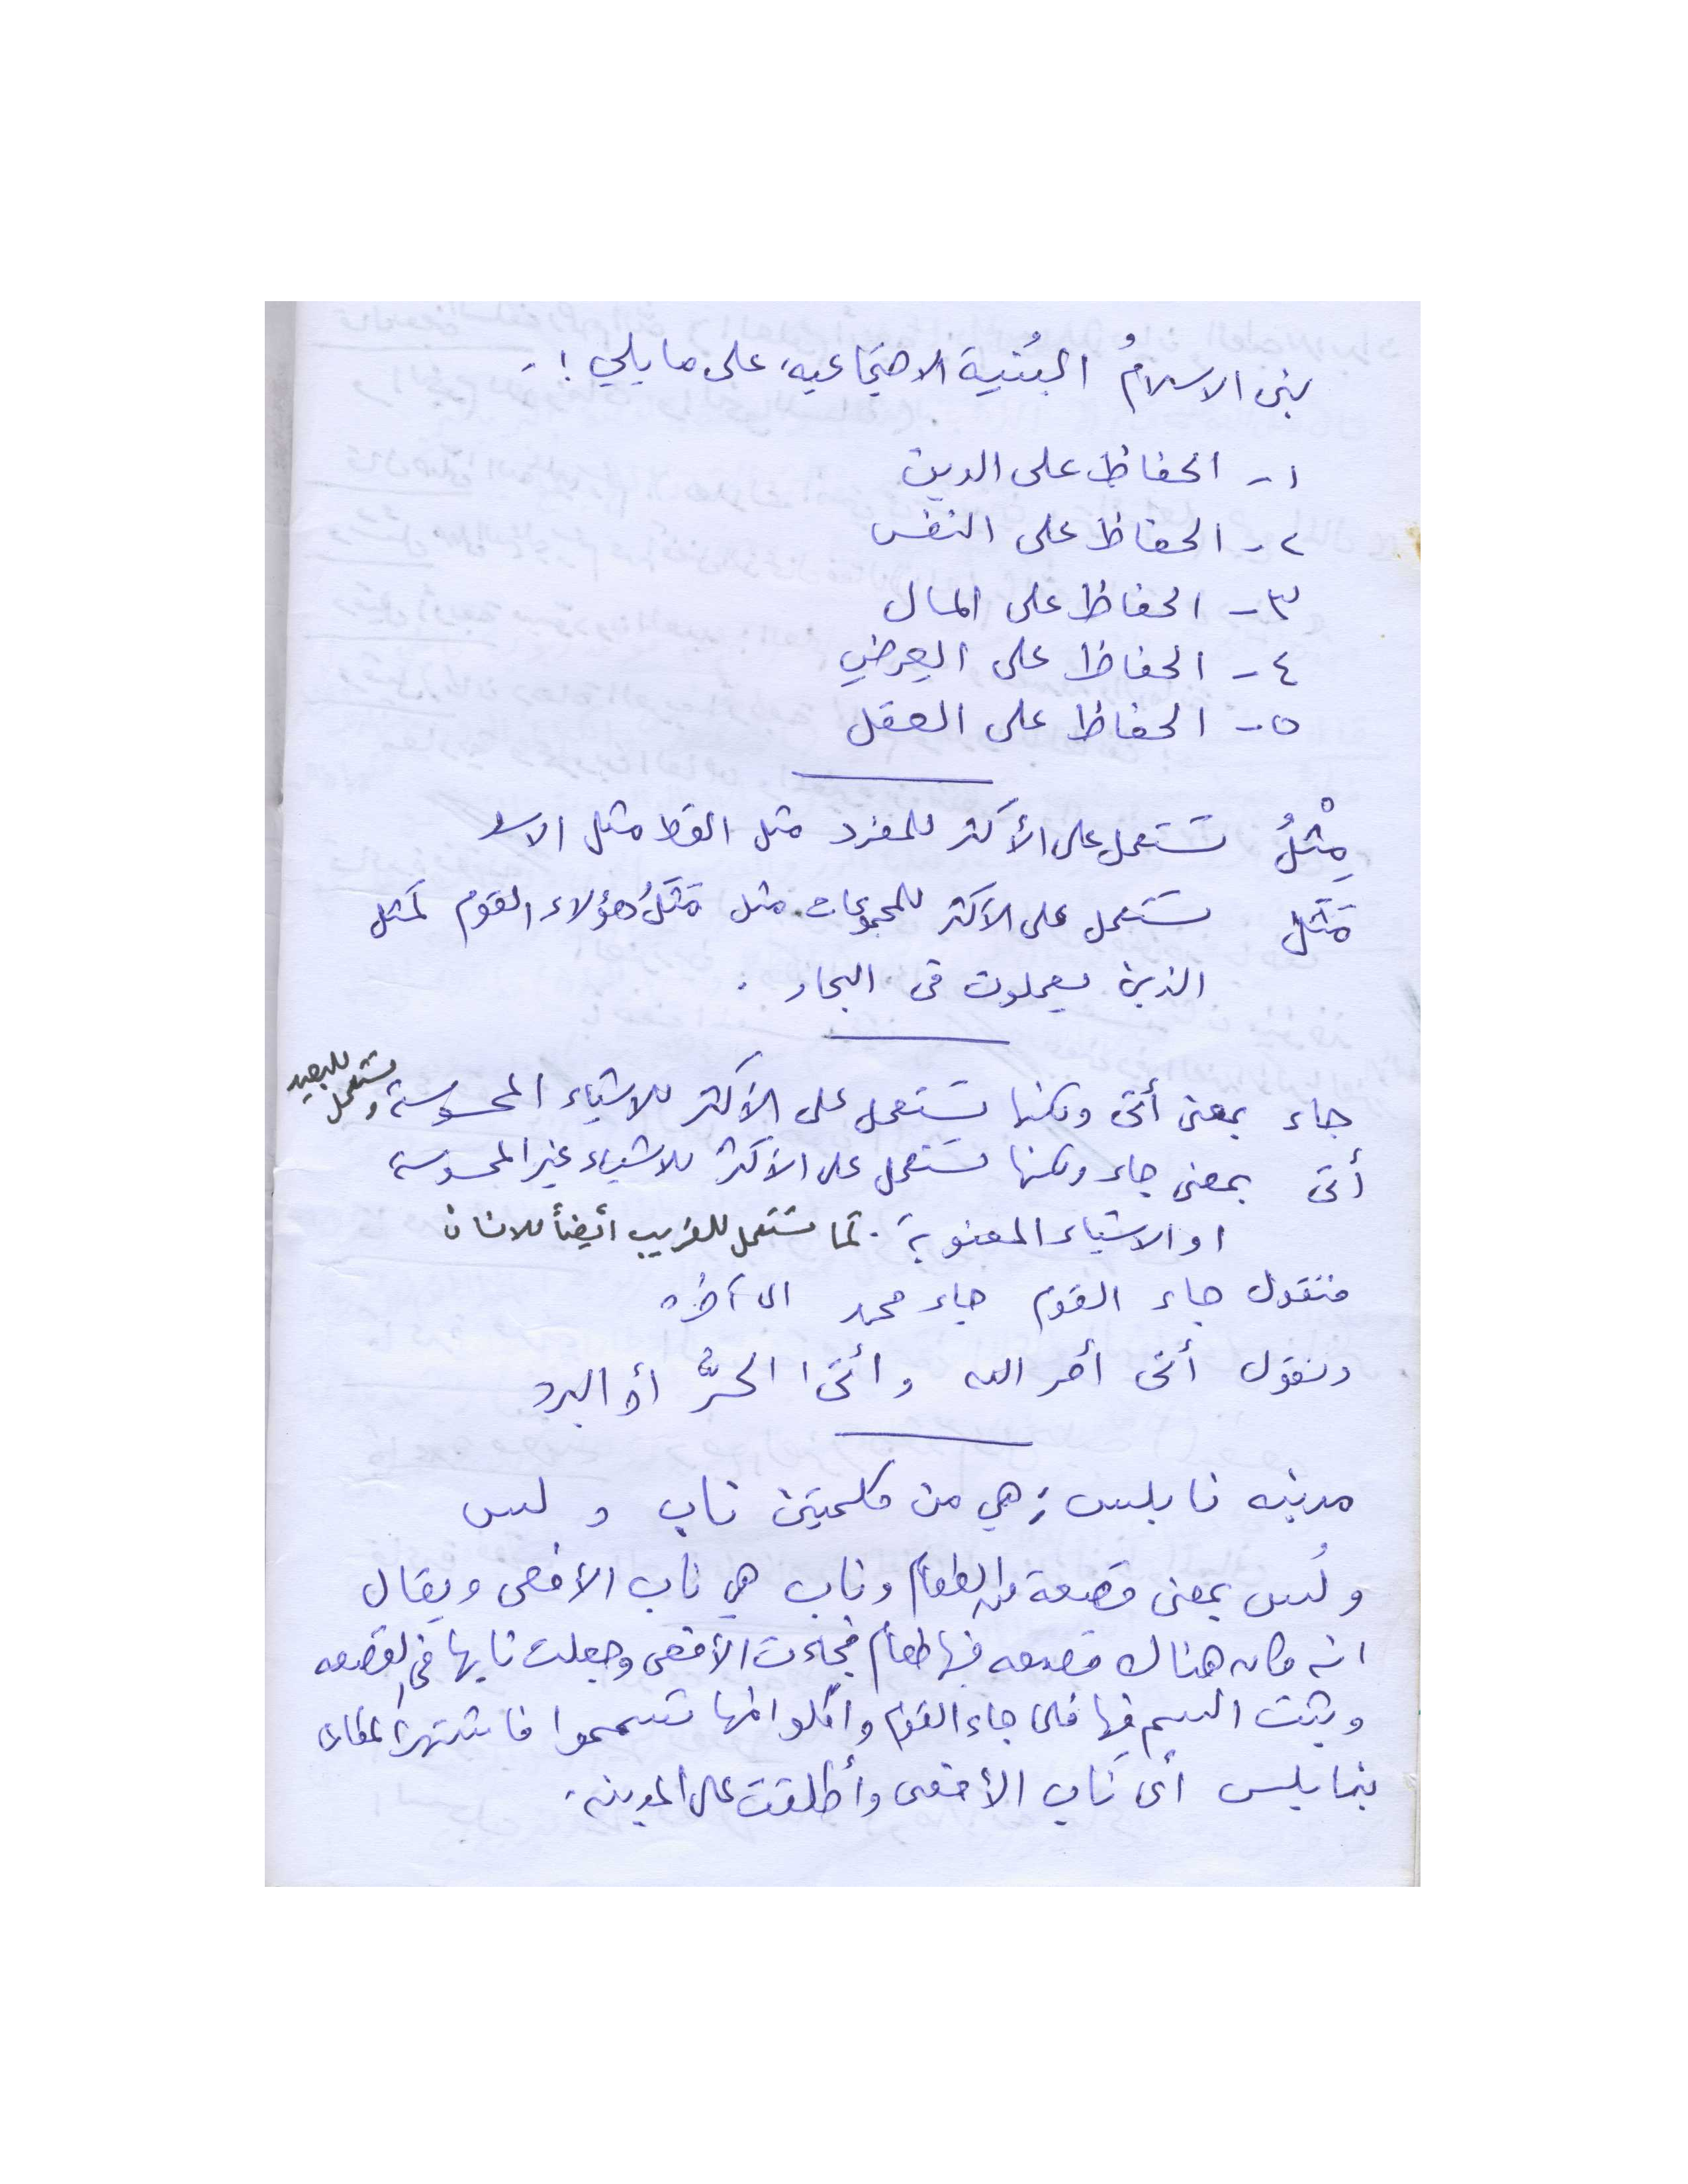 بنى الاسلامُ البُنية الاجتماعيه، على ما يلي :-
١- الحفاظ على الدين
٢- الحفاظ على النفس
٣- الحفاظ على المال
٤- الحفاظ على العِرض
٥- الحفاظ على العقل
مِثْلُ تستعمل على الأكثر للمفرد مثل القط مثل الاسد
مَثَل تستعمل على الأكثر للمجموعات. مثل مَثَلُ هؤلاء القوم كمثل
الذين يعملون في البحار .
جاء بمعنى أتى ولكنها تستعمل على الأكثر للاشياء المحسوسة وتستعمل للبعيد
أتى بمعنى جاء ولكنها تستعمل على الأكثر للاشياء غير المحسوسة
او الاشياء المعنوية . كما تستعمل للقريب أيضاً للانسان
فنقول جاء القوم جاء محمد الى آخره
ونقول أتى أمر الله وأتى الحرُّ أو البرد
مدينه نابلس : هي من كلمتين ناب و لس
و لُس بمعنى قصعة من الطعام وناب هي ناب الأفعى ويقال
انه كان هناك قصعه فيها طعام فجاءت الأفعى وجعلت نابها في القصعه
وبثت السم فيها فلما جاء القوم وأكلوا منها تسمموا فاشتهر المكان
بنابلس أي ناب الأفعى وأطلقت على المدينه .